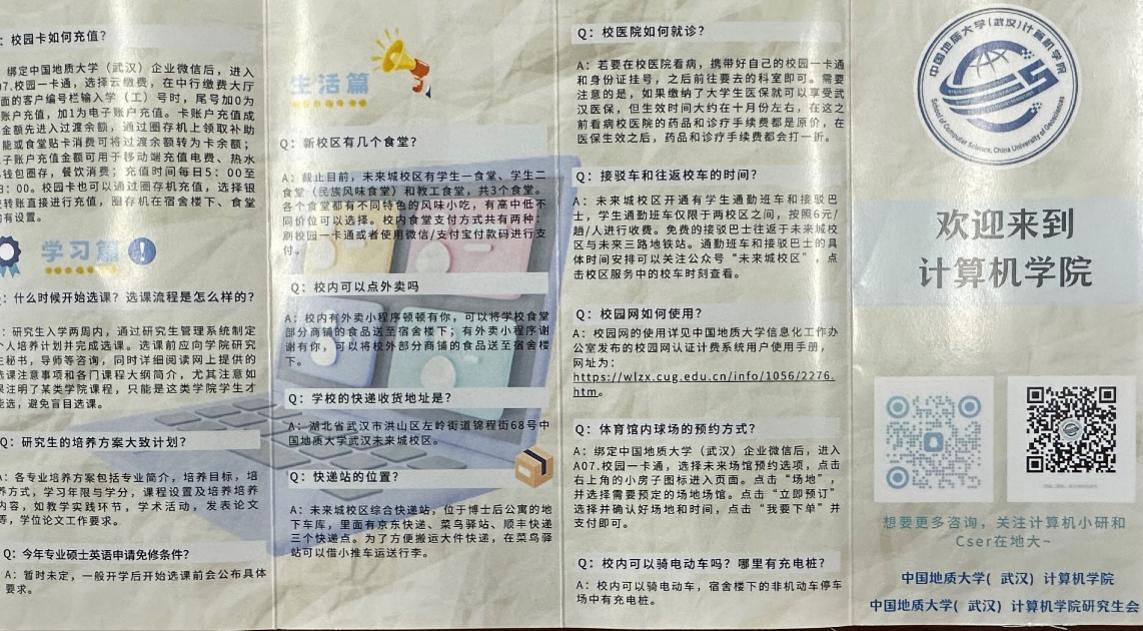 ：校园卡如何充值？
绑定中国地质大学（武汉）企业微信后，进入
07.校园一卡通，选择云缴费，在中行缴费大厅
面的客户编号栏输入学（工）号时，尾号加0为
账户充值，加1为电子账户充值。卡账户充值成
金额先进入过渡余额，通过圈存机上领取补助
能或食堂贴卡消费可将过渡余额转为卡余额；
子账户充值金额可用于移动端充值电费、热水
钱包圈存，餐饮消费；充值时间每日5：00至
3：00。校园卡也可以通过圈存机充值，选择银
转账直接进行充值，圈存机在宿舍楼下、食堂
有设置。
学习篇
：什么时候开始选课？选课流程是怎么样的？
：研究生入学两周内，通过研究生管理系统制定
个人培养计划并完成选课。选课前应向学院研究
生秘书，导师等咨询，同时详细阅读网上提供的
选课注意事项和各门课程大纲简介，尤其注意如
果注明了某类学院课程，只能是这类学院学生才
能选，避免盲目选课。
Q：研究生的培养方案大致计划？
A：各专业培养方案包括专业简介，培养目标，培
养方式，学习年限与学分，课程设置及培养培养
内容，如教学实践环节，学术活动，发表论文
等，学位论文工作要求。
Q：今年专业硕士英语申请免修条件？
A：暂时未定，一般开学后开始选课前会公布具体
要求。
生活篇
Q：新校区有几个食堂？
A：截止目前，未来城校区有学生一食堂、学生二
食堂（民族风味食堂）和教工食堂，共3个食堂。
各个食堂都有不同特色的风味小吃，有高中低不
同价位可以选择。校内食堂支付方式共有两种：
刷校园一卡通或者使用微信/支付宝付款码进行支
付。
Q：校内可以点外卖吗
A：校内有外卖小程序顿顿有你，可以将学校食堂
部分商铺的食品送至宿舍楼下；有外卖小程序谢
谢有你，可以将校外部分商铺的食品送至宿舍楼
下。
Q：学校的快递收货地址是？
A：湖北省武汉市洪山区左岭街道锦程街68号中
国地质大学武汉未来城校区。
Q：快递站的位置？
A：未来城校区综合快递站，位于博士后公寓的地
下车库，里面有京东快递、菜鸟驿站、顺丰快递
三个快递点。为了方便搬运大件快递，在菜鸟驿
站可以借小推车运送行李。
Q：校医院如何就诊？
A：若要在校医院看病，携带好自己的校园一卡通
和身份证挂号，之后前往要去的科室即可。需要
注意的是，如果缴纳了大学生医保就可以享受武
汉医保，但生效时间大约在十月份左右，在这之
前看病校医院的药品和诊疗手续费都是原价，在
医保生效之后，药品和诊疗手续费都会打一折。
Q：接驳车和往返校车的时间？
A：未来城校区开通有学生通勤班车和接驳巴
士，学生通勤班车仅限于两校区之间，按照6元/
趟/人进行收费。免费的接驳巴士往返于未来城校
区与未来三路地铁站。通勤班车和接驳巴士的具
体时间安排可以关注公众号“未来城校区”，点
击校区服务中的校车时刻查看。
Q：校园网如何使用？
A：校园网的使用详见中国地质大学信息化工作办
公室发布的校园网认证计费系统用户使用手册，
网址为：
https://wlzx.cug.edu.cn/info/1056/2276.
htm。
Q：体育馆内球场的预约方式？
A：绑定中国地质大学（武汉）企业微信后，进入
A07.校园一卡通，选择未来场馆预约选项，点击
右上角的小房子图标进入页面。点击“场地”，
并选择需要预定的场地场馆。点击“立即预订”
选择并确认好场地和时间，点击“我要下单”并
支付即可。
Q：校内可以骑电动车吗？哪里有充电桩？
A：校内可以骑电动车，宿舍楼下的非机动车停车
场中有充电桩。
中国地质大学（武汉）计算机学院
School of Computer Science, China University of Geosciences
欢迎来到
计算机学院
想要更多咨询，关注计算机小研和
Cser在地大~
中国地质大学( 武汉）计算机学院
中国地质大学( 武汉）计算机学院研究生会